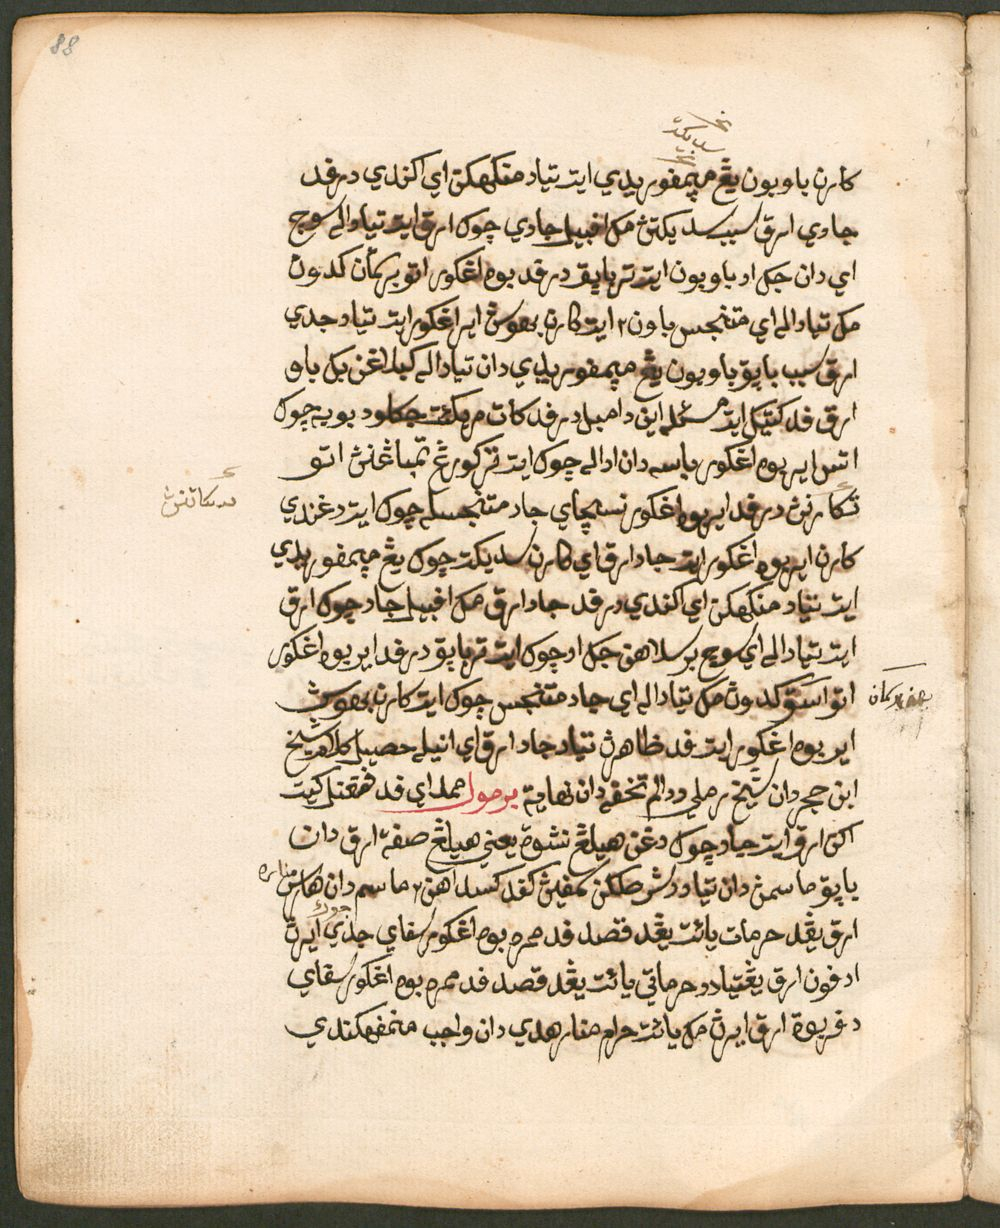 88
سديكت
كارن باوبون يڠ مڽمفورىدي ايت تياد منڬهكن اي اكندي درفد
جادي ارق سبب سديكتڽ مك افبيل جادي چوك ارق ايت تيادله سوچ
اي دان جك اد باوبون ايت تربايق درفد بوه اڠكور اتو برسمأن كدوڽ
مك تيادله اي متنجس باون٢ ايت كارن بهوسڽ اير اڠكور ايت تياد جدي
ارق سبب بايق باوبون يڠ مڽمفوريدي دان تيادله كبلاڠن بكل باو
ارق فد كتيك ايت مسئله اين دامبل درفد كات مريكئت جكلود بوبه چوك
اتس اير بوه اڠكور باسه دان اداله چوك ايت قركورڠ تمباڠنڽ اتو
تكارنڽ درفد اير بوه اڠكور نسچاي جاد متنجسله چوك ايت دڠندي
كارن اير بوه اڠكور ايت جاد ارق اي كارن سديكت چوك يڠ مڽمفوريدي
ايت تياد منڬهكن اي اكندي درفد جاد ارق مك افبيل جاد چوك ارق
ايت تيادله اي سوچ برسلاهن جك اد چوك ايت تربايق درفد اير بوه اڠكور
اتو استو كدوڽ مك تيادله اي جاد متنجس چوك ايت كارن بهوسڽ
اير بوه اڠكور ايت فد ظاهرڽ تياد جاد ارق اي انيله حصيل كلام شيخ
ابن حجر دان شيخ رملي ددالم تحفه دان نهاية برمول همله اي فد فڠتل كيت
اكن ارق ايت جاد چوك دڠن هيلڠ نشوة يعني هيلڠ صفة ارق دان
باپق ماسمن دان تياد دشرطكن كمفيڽ كفد كسداهن٢ ماسم دان هارس منارهء
ارق يڠد حرمات يائت يڠد قصد فد ممره بوه اڠكور سفاي جدي ايرڽ
ادفون ارق يڠتياد دحرماتي يائت يڠد قصد فد ممره بوه اڠكور سفاي
دفربوة ارق ايرڽ مك يائت حرام منارهدي دان واجب منمفهكندي
سكاتنڽ